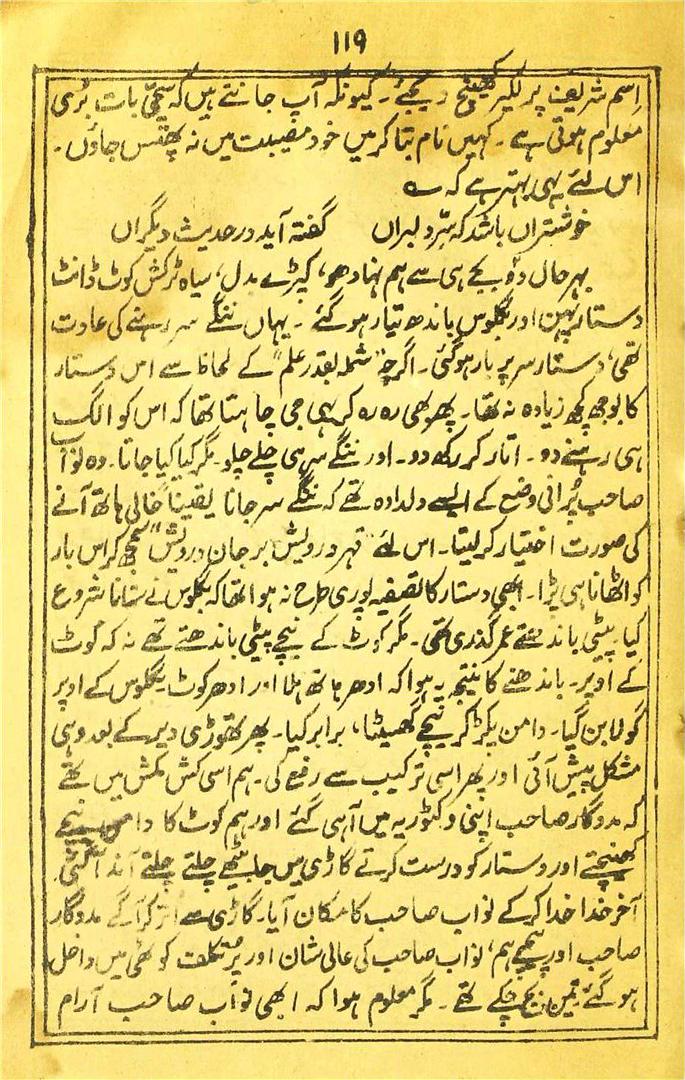 ۱۱۹
اِسم شریف پر لکیر کھینچ دیجئے۔ کیونکہ آپ جانتے ہیں کہ سچّی بات بُری
معلوم ہوتی ہے۔ کہیں نام بتا کر میں خود مصیبت میں نہ پھنس جاؤں۔
اس لئے یہی بہتر ہے کہ ؎
خوشتراں باشد کہ سّرِ دلبراں گفتہ آید در حدیث دیگراں
بہر حال دو بجے ہی سے ہم نہا دھو، کپڑے بدل، سیاہ ٹرکش کوٹ ڈانٹ
دستار پہن اور بگلوس باندھ تیار ہو گئے۔ یہاں ننگے سر رہنے کی عادت
تھی، دستار سر پر بار ہو گئی۔ اگرچہ "شملہ بقدر علم" کے لحاظ سے اس دستار
کا بوجھ کچھ زیادہ نہ تھا۔ پھر بھی رہ رہ کر یہی جی چاہتا تھا کہ اس کو الگ
ہی رہنے دو۔ اتار کر رکھ دو۔ اور ننگے سر ہی چلے چلو۔ مگر کیا کیا جاتا۔ وہ نواب
صاحب پُرانی وضع کے ایسے دلدادہ تھے کہ ننگے سر جانا یقیناً خالی ہاتھ آنے
کی صورت اختیار کر لیتا۔ اس لئے "قہر درویش بر جان درویش" سمجھ کر اس بار
کو اٹھانا ہی پڑا۔ ابھی دستار کا تصفیہ پوری طرح نہ ہوا تھا کہ بگلوس نے ستانا شروع
کیا۔ پیٹی باندھتے عمر گذری تھی۔ مگر کوٹ کے نیچے پیٹی باندھتے تھے نہ کہ کوٹ
کے اوپر۔ باندھنے کا نتیجہ یہ ہوا کہ ادھر ہاتھ ہلا اور ادھر کوٹ بگلوس کے اوپر
گولا بن گیا۔ دامن پکڑ کر نیچے گھسیٹا، برابر کیا۔ پھر تھوڑی دیر کے بعد وہی
مشکل پیش آئی اور پھر اسی ترکیب سے رفع کی۔ ہم اسی کش مکش میں تھے
کہ مددگار صاحب اپنی وکٹوریہ میں آ ہی گئے اور ہم کوٹ کا دامن نیچے
کھینچتے اور دستار کو درست کرتے گاڑی میں جا بیٹھے چلتے چلتے آندھ آگئی
آخر خدا خدا کر کے نواب صاحب کا مکان آیا۔ گاڑی سے اتر کر آگے مددگار
صاحب اور پیچھے ہم، نواب صاحب کی عالی شان اور پُر تکلف کوٹھی میں داخل
ہو گئے۔ تین بج چکے تھے۔ مگر معلوم ہوا کہ ابھی نواب صاحب آرام